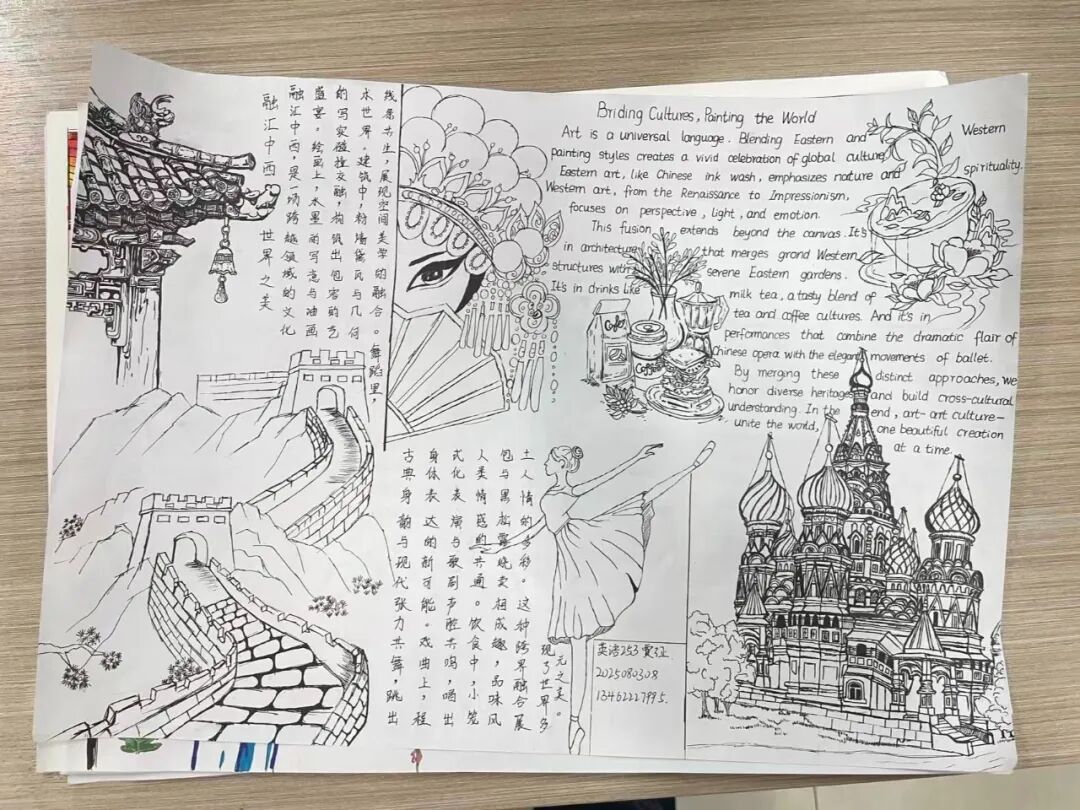 融汇中西 世界之美
融汇中西,是一场跨越领域的文化
盛宴。绘画上,水墨的写意与油画
的写实碰撞交融,构筑出包容的艺
术世界。建筑中,粉墙黛瓦与几何
线条共生,展现空间美学的融合。舞蹈里,
古典身韵与现代张力共舞,跳出
身体表达的新可能。戏曲上,程
式化表演与歌剧声腔共鸣,唱出
人类情感的共通。饮食中,小笼
包与黑松露烧卖相成趣,品味风
土人情的多彩。这种跨界融合展
现了世界多
元之美。
Briding Cultures, Painting the World
Art is a universal language. Blending Eastern and Western
painting styles creates a vivid celebration of global culture.
Eastern art, like Chinese ink wash, emphasizes nature and spirituality.
Western art, from the Renaissance to Impressionism,
focuses on perspective, light, and emotion.
This fusion extends beyond the canvas. It's
in architecture that merges grond Western
structures with serene Eastern gardens.
It's in drinks like milk tea, a tasty blend of
tea and coffee cultures. And it's in
performances that combine the dramatic flair of
Chinese opera with the elegant movements of ballet.
By merging these distinct approaches, we
honor diverse heritages and build cross-cultural
understanding. In the end, art-art culture-
unite the world, one beautiful creation
at a time.
Coffee
Coffee
英语253
2025080308
13462227995.